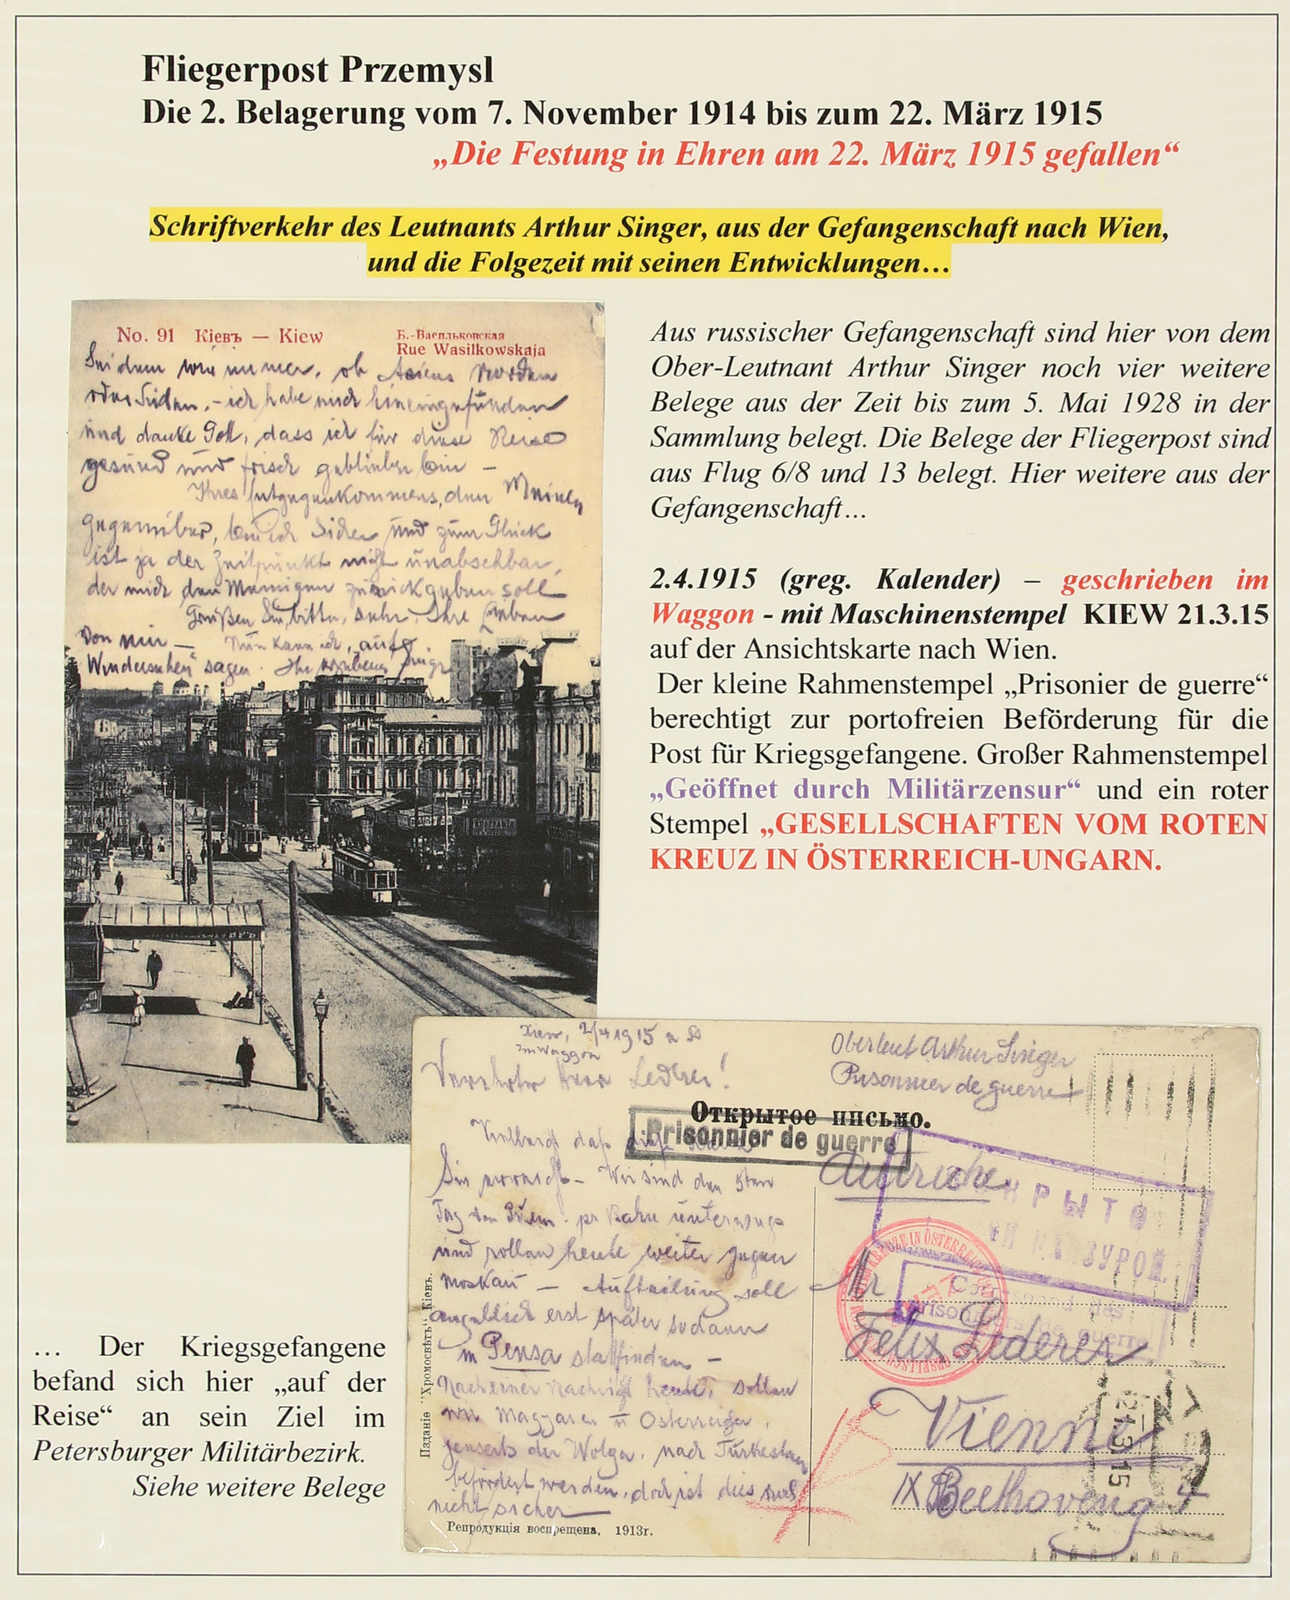 Fliegerpost Przemysl
Die 2. Belagerung vom 7. November 1914 bis zum 22. März 1915
„Die Festung in Ehren am 22. März 1915 gefallen“
Schriftverkehr des Leutnants Arthur Singer, aus der Gefangenschaft nach Wien,
und die Folgezeit mit seinen Entwicklungen…
No. 91 Кіевъ — Kiew
Б.-Васильковская
Rue Wasilkowskaja
Sei dem wie immer, ob Asiens Norden
oder Süden, - ich habe mich hineingefunden
und danke Gott, dass ich für diese Reise
gesund und frisch geblieben bin —
Ihres Entgegenkommens, den Meinen
gegenüber, bin ich sicher und zum Glück
ist ja der Zeitpunkt nicht unabsehbar,
der mich den Meinigen zurückgeben soll
Grüßen Sie bitte, sehr, Ihre Lieben
von mir — Nun kann ich, auf
Wiedersehen" sagen. Ihr
Aus russischer Gefangenschaft sind hier von dem
Ober-Leutnant Arthur Singer noch vier weitere
Belege aus der Zeit bis zum 5. Mai 1928 in der
Sammlung belegt. Die Belege der Fliegerpost sind
aus Flug 6/8 und 13 belegt. Hier weitere aus der
Gefangenschaft…
2.4.1915 (greg. Kalender) – geschrieben im
Waggon - mit Maschinenstempel KIEW 21.3.15
auf der Ansichtskarte nach Wien.
Der kleine Rahmenstempel „Prisonier de guerre“
berechtigt zur portofreien Beförderung für die
Post für Kriegsgefangene. Großer Rahmenstempel
„Geöffnet durch Militärzensur“ und ein roter
Stempel „GESELLSCHAFTEN VOM ROTEN
KREUZ IN ÖSTERREICH-UNGARN.
Kiew, 2/4 1915
im Waggon
Verehrter Herr Lederer!
Vielleicht daß diese
Sie erreicht — Wir sind den
Tag von Przem. pr Bahn unterwegs
und rollen heute weiter gegen
Moskau — Aufteilung soll
angeblich erst später sodann
in Pensa stattfinden —
Nach einer Nachricht heute, sollen
wir Magyaren u Österreicher,
jenseits der Wolga, nach Turkestan
befördert werden, doch ist dies
nicht sicher —
Oberleut Arthur Singer
Prisonnier de guerre
Открытое письмо.
Prisonnier de guerre
Autriche
Mr
Felix Lederer
Vienne
IX Beethoveng 4
21.3.15
Изданіе "Хромосвѣтъ" Кіевъ.
Репродукція воспрещена, 1913г.
… Der Kriegsgefangene
befand sich hier „auf der
Reise“ an sein Ziel im
Petersburger Militärbezirk.
Siehe weitere Belege